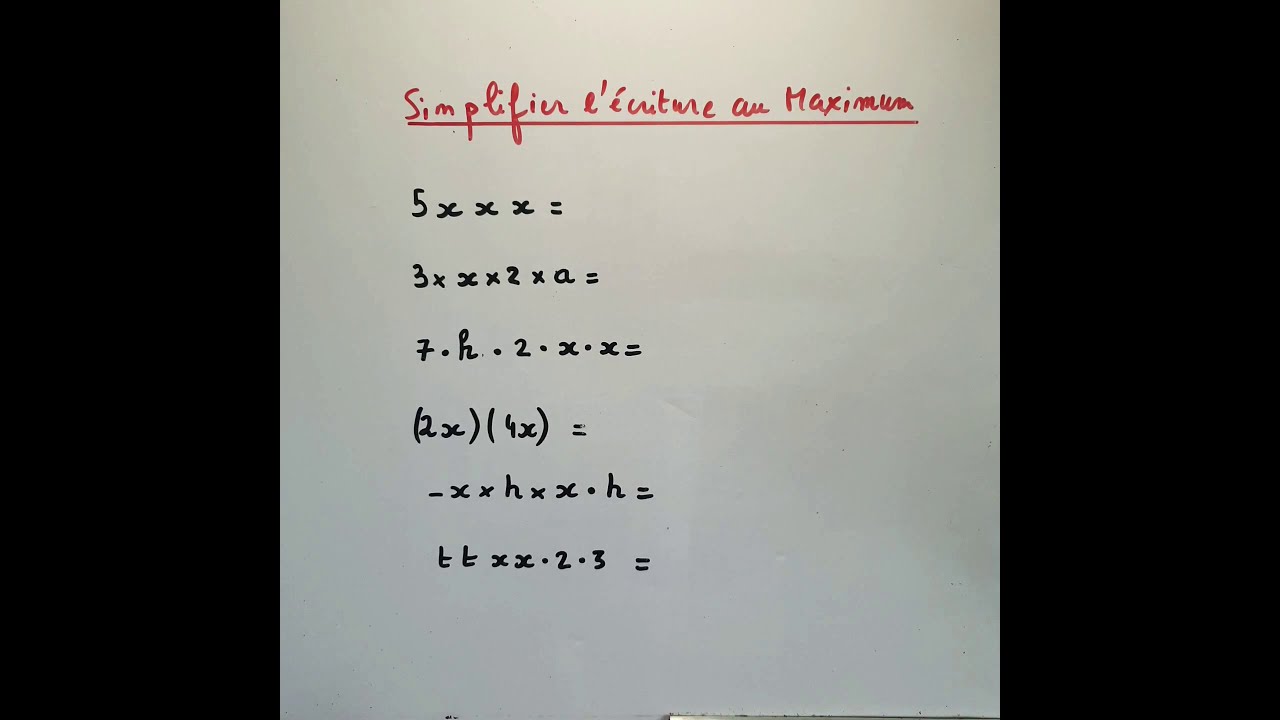 Simplifier l'écriture au Maximum
5x x x =
3 × x × 2 × a =
7 · h · 2 · x · x =
(2x)(4x) =
- x × h × x · h =
t t x x · 2 · 3 =